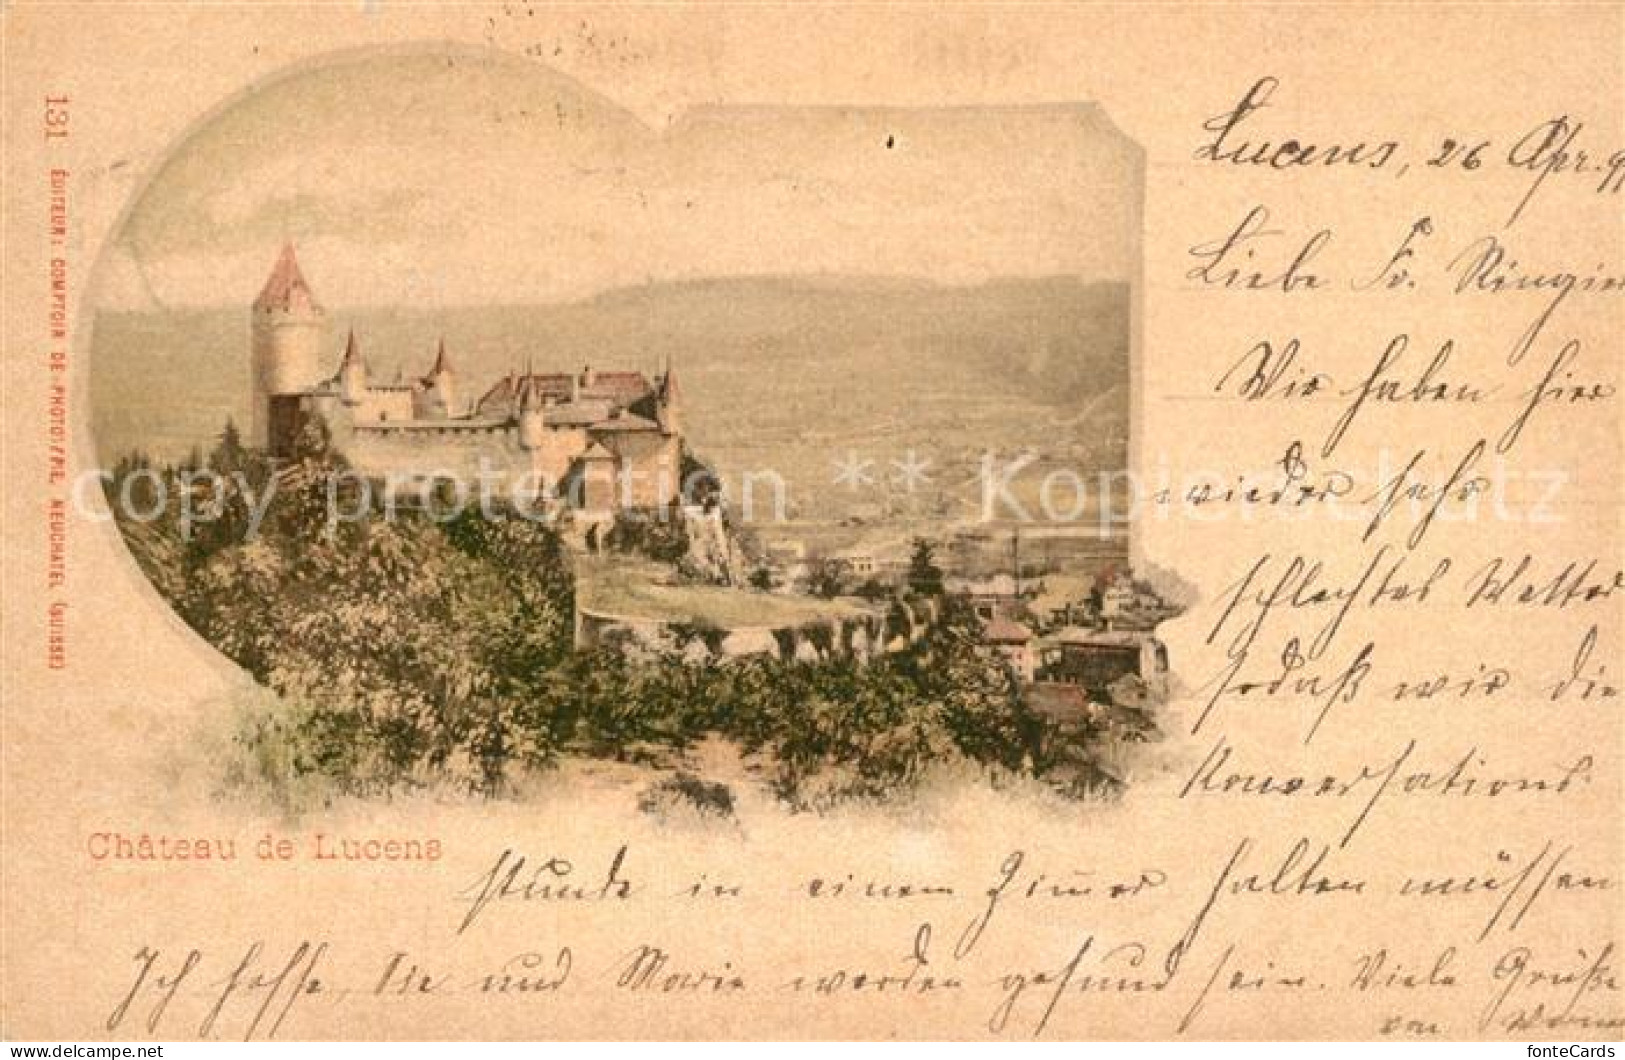 131 ÉDITEUR: COMPTOIR DE PHOTOTYPIE, NEUCHATEL (SUISSE)
Lucens, 26 Apr. 9
Liebe Fr. Ringier
Wir haben hier
wieder sehr
schlechtes Wetter
sodaß wir die
Konversations
Château de Lucens
stunde in einem Zimer halten müssen
Ich hoffe, Sie und Marie werden gesund sein. Viele Grüße
von
copy protection ** Kopierschutz
www.delcampe.net
fonteCards